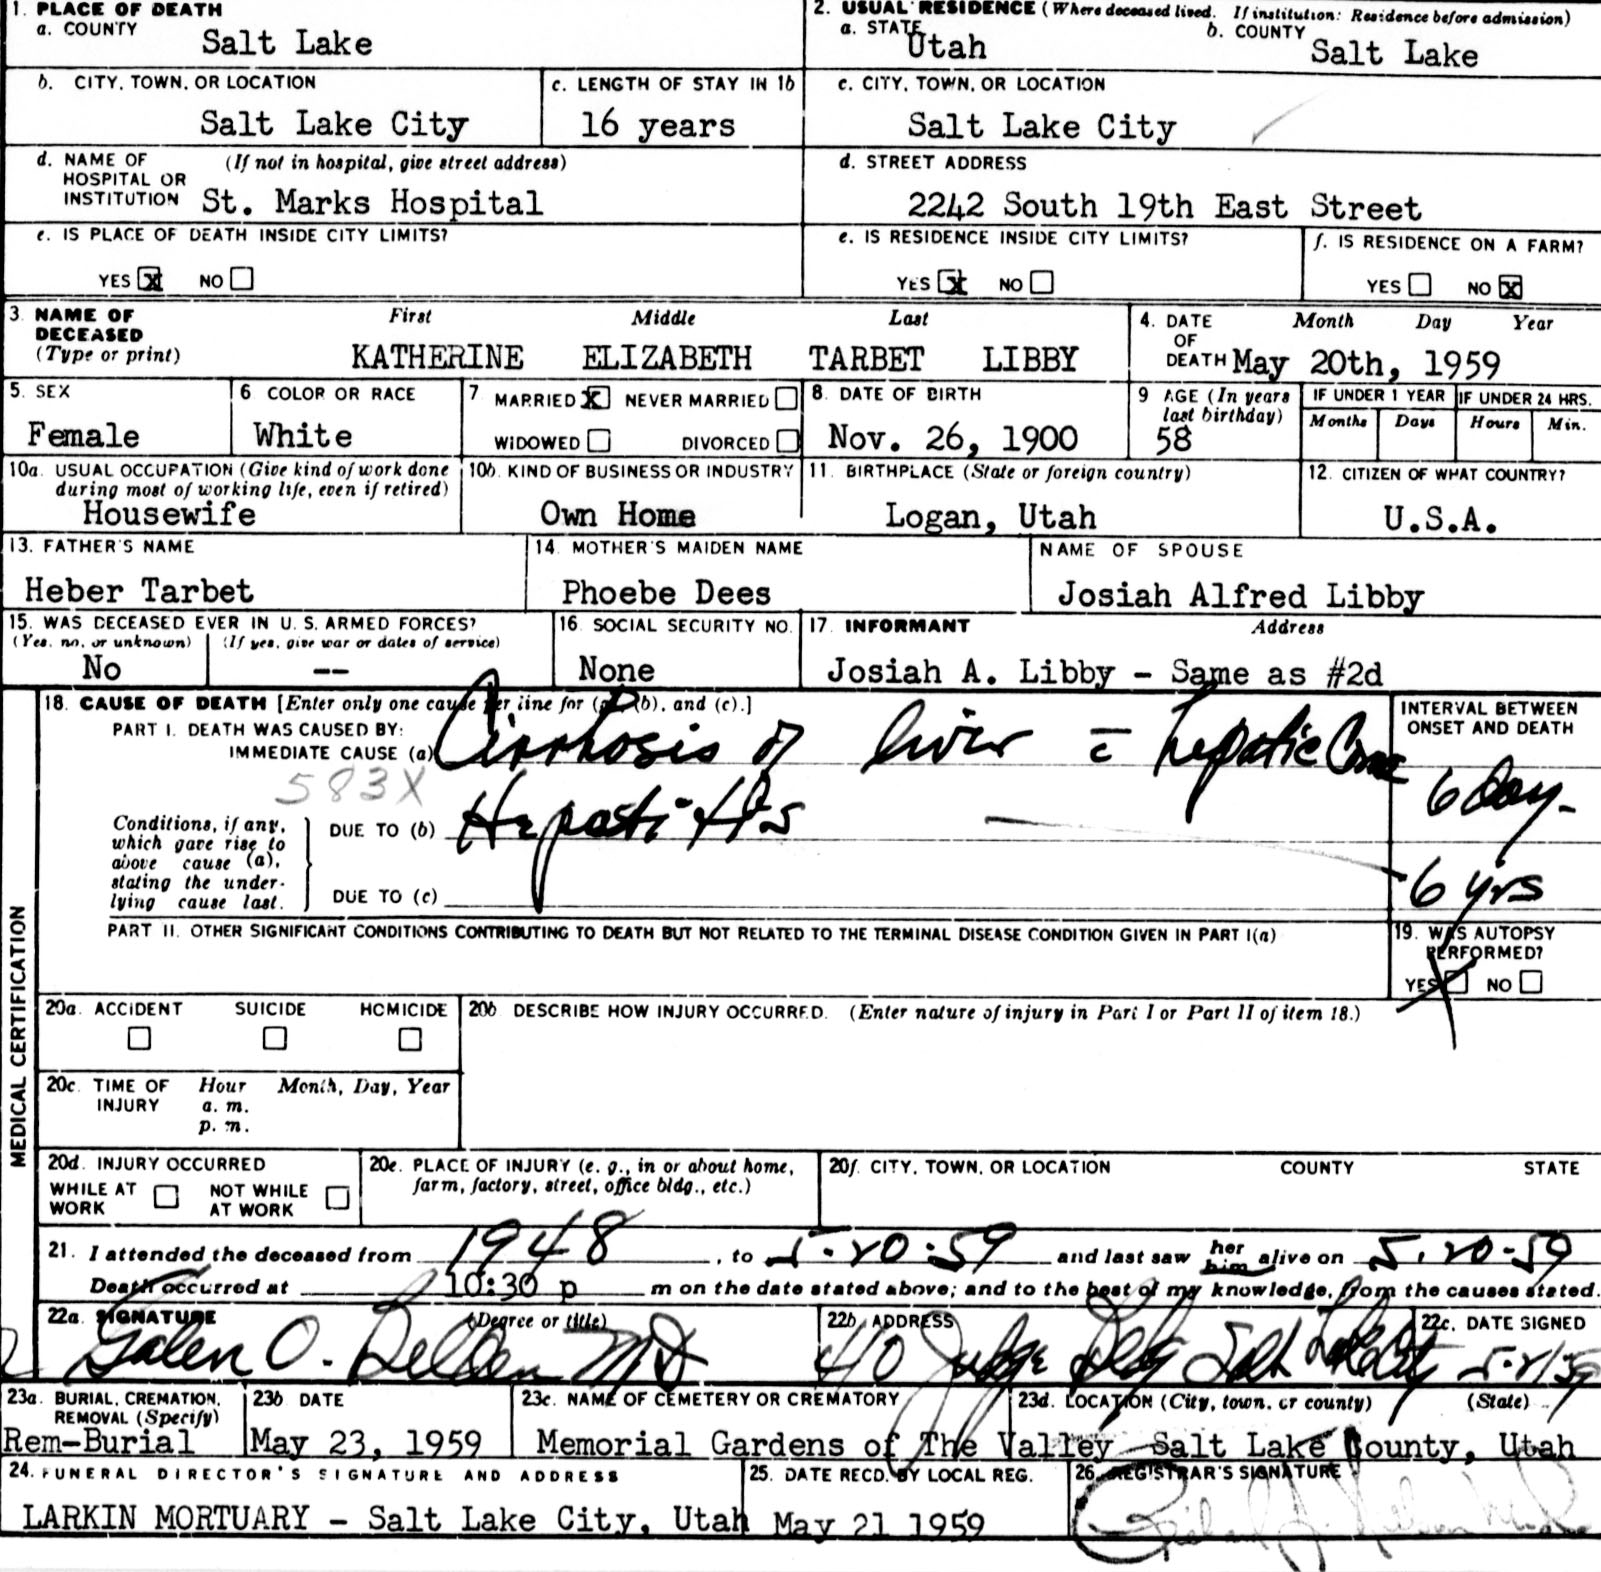 1. PLACE OF DEATH
a. COUNTY Salt Lake
2. USUAL RESIDENCE (Where deceased lived. If institution: Residence before admission)
a. STATE Utah b. COUNTY Salt Lake
b. CITY, TOWN, OR LOCATION Salt Lake City
c. LENGTH OF STAY IN 1b 16 years
c. CITY, TOWN, OR LOCATION Salt Lake City
d. NAME OF HOSPITAL OR INSTITUTION (If not in hospital, give street address)
St. Marks Hospital
d. STREET ADDRESS
2242 South 19th East Street
e. IS PLACE OF DEATH INSIDE CITY LIMITS?
YES X NO
e. IS RESIDENCE INSIDE CITY LIMITS?
YES X NO
f. IS RESIDENCE ON A FARM?
YES NO X
3. NAME OF DECEASED (Type or print)
First Middle Last
KATHERINE ELIZABETH TARBET LIBBY
4. DATE OF DEATH Month Day Year
May 20th, 1959
5. SEX
Female
6. COLOR OR RACE
White
7. MARRIED X NEVER MARRIED
WIDOWED DIVORCED
8. DATE OF BIRTH
Nov. 26, 1900
9 AGE (In years last birthday)
58
IF UNDER 1 YEAR IF UNDER 24 HRS.
Months Days Hours Min.
10a. USUAL OCCUPATION (Give kind of work done during most of working life, even if retired)
Housewife
10b. KIND OF BUSINESS OR INDUSTRY
Own Home
11. BIRTHPLACE (State or foreign country)
Logan, Utah
12. CITIZEN OF WHAT COUNTRY?
U.S.A.
13. FATHER'S NAME
Heber Tarbet
14. MOTHER'S MAIDEN NAME
Phoebe Dees
NAME OF SPOUSE
Josiah Alfred Libby
15. WAS DECEASED EVER IN U.S. ARMED FORCES?
(Yes, no, or unknown) (If yes, give war or dates of service)
No --
16. SOCIAL SECURITY NO.
None
17. INFORMANT Address
Josiah A. Libby - Same as #2d
MEDICAL CERTIFICATION
18. CAUSE OF DEATH [Enter only one cause per line for (a), (b), and (c).]
PART I. DEATH WAS CAUSED BY:
IMMEDIATE CAUSE (a) Cirrhosis of liver c̄ hepatic Coma
583X
Conditions, if any, which gave rise to above cause (a), stating the underlying cause last.
DUE TO (b) Hepatitis
DUE TO (c)
INTERVAL BETWEEN ONSET AND DEATH
6 day
6 yrs
PART II. OTHER SIGNIFICANT CONDITIONS CONTRIBUTING TO DEATH BUT NOT RELATED TO THE TERMINAL DISEASE CONDITION GIVEN IN PART I(a)
19. WAS AUTOPSY PERFORMED?
YES X NO
20a. ACCIDENT SUICIDE HOMICIDE
20b. DESCRIBE HOW INJURY OCCURRED. (Enter nature of injury in Part I or Part II of item 18.)
20c. TIME OF INJURY Hour Month, Day, Year
a. m.
p. m.
20d. INJURY OCCURRED
WHILE AT WORK NOT WHILE AT WORK
20e. PLACE OF INJURY (e. g., in or about home, farm, factory, street, office bldg., etc.)
20f. CITY, TOWN, OR LOCATION COUNTY STATE
21. I attended the deceased from 1948, to 5-20-59 and last saw her him alive on 5-20-59
Death occurred at 10:30 p m on the date stated above; and to the best of my knowledge, from the causes stated.
22a. SIGNATURE (Degree or title)
Galen O. Belden MD
22b. ADDRESS
Judge Bldg Salt Lake City
22c. DATE SIGNED
23a. BURIAL, CREMATION, REMOVAL (Specify)
Rem-Burial
23b DATE
May 23, 1959
23c. NAME OF CEMETERY OR CREMATORY
Memorial Gardens of The Valley
23d. LOCATION (City, town, or county) (State)
Salt Lake County, Utah
24. FUNERAL DIRECTOR'S SIGNATURE AND ADDRESS
LARKIN MORTUARY - Salt Lake City, Utah
25. DATE RECD. BY LOCAL REG.
May 21 1959
26. REGISTRAR'S SIGNATURE